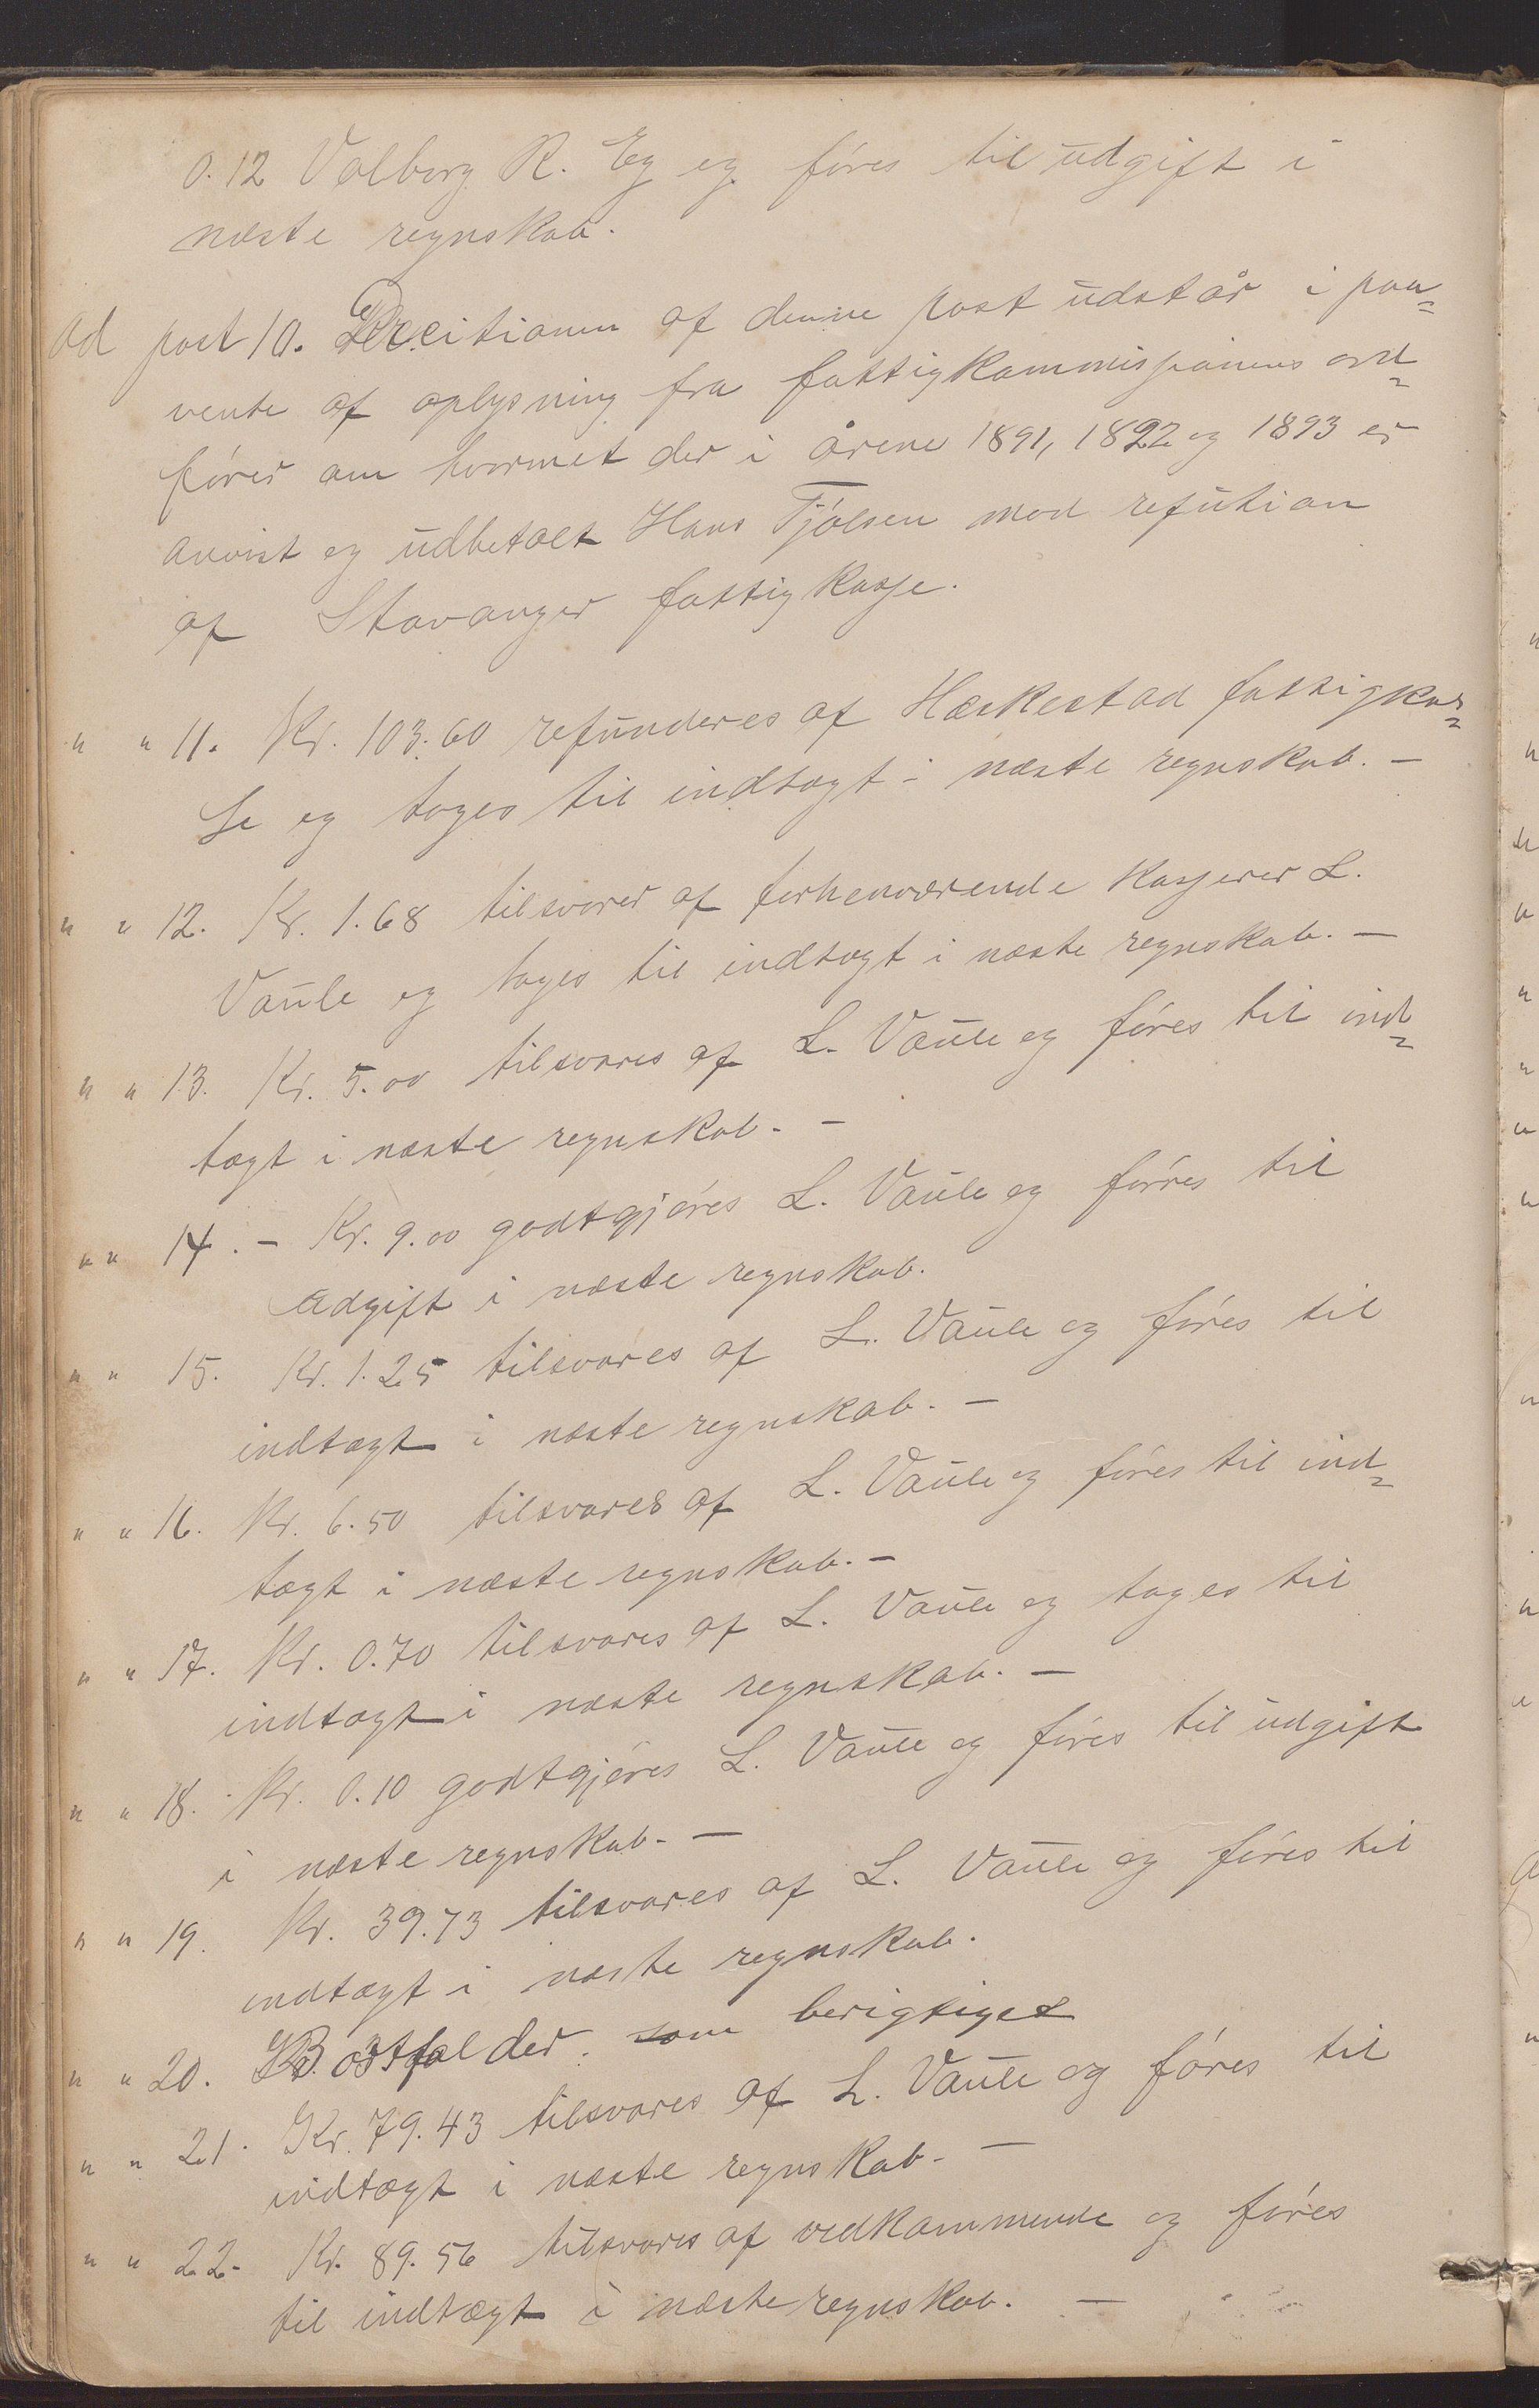 0.12 Valborg R. Eg og føres til udgift i
næste regnskab.
Ad post 10. Decitionen af denne post udstår i paa=
vente af oplysning fra fattigkommissionens ord=
fører om hvormet der i årene 1891, 1892 og 1893 er
anvist og udbetalt Hans Tjølsen mod refution
af Stavanger fattigkasse.
" " 11. Kr. 103.60 refunderes af Hæskestad fattigkas=
se og tages til indtægt i næste regnskab. -
" " 12. Kr. 1.68 tilsvares af forhenværende kasserer L.
Vaule og tages til indtægt i næste regnskab. -
" " 13. Kr. 5.00 tilsvares af L. Vaule og føres til ind=
tægt i næste regnskab. -
" " 14. - Kr. 9.00 godtgjøres L. Vaule og føres til
udgift i næste regnskab.
" " 15. Kr. 1.25 tilsvares af L. Vaule og føres til
indtægt i næste regnskab. -
" " 16. Kr. 6.50 tilsvares af L. Vaule og føres til ind=
tægt i næste regnskab. -
" " 17. Kr. 0.70 tilsvares af L. Vaule og tages til
indtægt i næste regnskab. -
" " 18. Kr. 0.10 godtgjøres L. Vaule og føres til udgift
i næste regnskab. -
" " 19. Kr. 39.73 tilsvares af L. Vaule og føres til
indtægt i næste regnskab.
" " 20. Bortfalder som berigtiget
" " 21. Kr. 79.43 tilsvares af L. Vaule og føres til
indtægt i næste regnskab. -
" " 22. Kr. 89.56 tilsvares af vedkommende og føres
til indtægt i næste regnskab. -